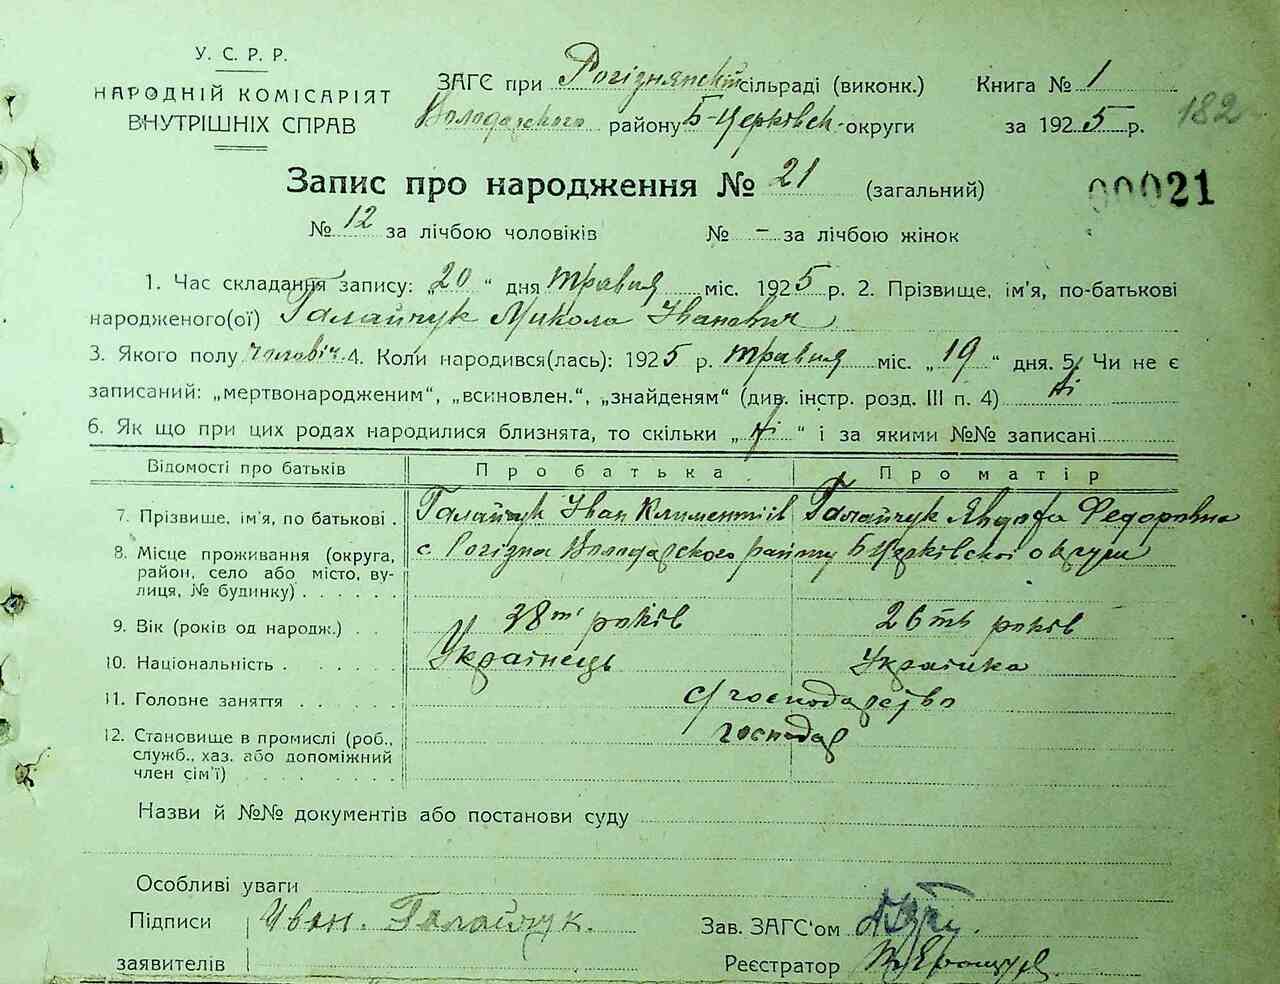 У. С. Р. Р.
НАРОДНІЙ КОМІСАРІЯТ
ВНУТРІШНІХ СПРАВ
ЗАГС при Рогізнянській сільраді (виконк.)
Володарского району Б-Церківськ. округи
Книга № 1
за 1925 р.
182
Запис про народження № 21 (загальний)
00021
№ 12 за лічбою чоловіків № – за лічбою жінок
1. Час складання запису: „20“ дня травня міс. 1925 р. 2. Прізвище, ім'я, по-батькові
народженого(ої) Галайчук Микола Іванович
3. Якого полу чоловіч. 4. Коли народився(лась): 1925 р. травня міс. „19“ дня. 5. Чи не є
записаний: „мертвонародженим“, „всиновлен.“, „знайденям“ (див. інстр. розд. III п. 4) Ні
6. Як що при цих родах народилися близнята, то скільки „Ні“ і за якими №№ записані
Відомості про батьків Про батька Про матір
7. Прізвище, ім'я, по батькові . Галайчук Іван Климентіїв Галайчук Явдоха Федоровна
8. Місце проживання (округа, с. Рогізна Володарского району Б Церківської округи
район, село або місто, ву-
лиця, № будинку) . . . . . .
9. Вік (років од народж.) . . 38 років 26ть років
10. Національність . . . . . . Українець Українка
11. Головне заняття . . . . . . с/господарство
12. Становище в промислі (роб., господар
служб., хаз. або допоміжний
член сім'ї) . . . . . . . .
Назви й №№ документів або постанови суду
Особливі уваги
Підписи Иван. Галайчук. Зав. ЗАГС'ом
заявителів Реєстратор